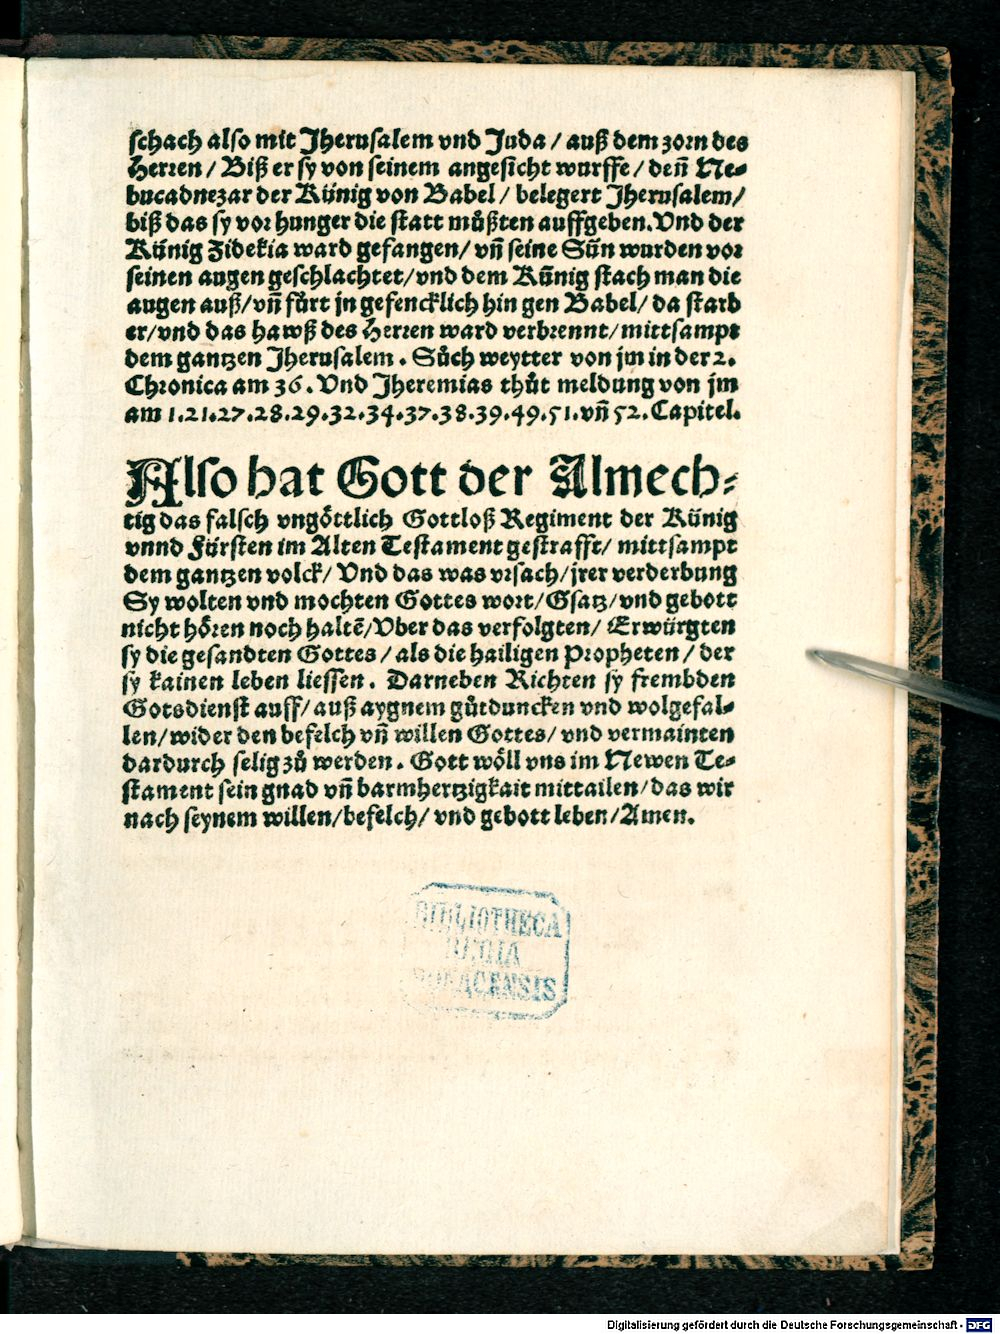 schach also mit Jherusalem vnd Juda / auß dem zorn des
Herren / Biß er sy von seinem angesicht wurffe / deñ Ne-
bucadnezar der Künig von Babel / belegert Jherusalem /
biß das sy vor hunger die statt můßten auffgeben. Vnd der
Künig Zidekia ward gefangen / vñ seine Sün wurden vor
seinen augen geschlachtet / vnd dem Künig stach man die
augen auß / vñ fůrt jn gefencklich hin gen Babel / da starb
er / vnd das hawß des Herren ward verbrennt / mittsampt
dem gantzen Jherusalem. Sůch weytter von jm in der 2.
Chronica am 36. Vnd Jheremias thůt meldung von jm
am 1.21.27.28.29.32.34.37.38.39.49.51. vñ 52. Capitel.
Also hat Gott der Almech-
tig das falsch vngöttlich Gottloß Regiment der Künig
vnnd Fürsten im Alten Testament gestrafft / mittsampt
dem gantzen volck / Vnd das was vrsach / jrer verderbung
Sy wolten vnd mochten Gottes wort / Gsatz / vnd gebott
nicht hören noch haltē / Vber das verfolgten / Erwürgten
sy die gesandten Gottes / als die hailigen Propheten / der
sy kainen leben liessen. Darneben Richten sy frembden
Gotsdienst auff / auß aygnem gůtduncken vnd wolgefal-
len / wider den befelch vñ willen Gottes / vnd vermainten
dardurch selig zů werden. Gott wöll vns im Newen Te-
stament sein gnad vñ barmhertzigkait mittailen / das wir
nach seynem willen / befelch / vnd gebott leben / Amen.
BIBLIOTHECA
REGIA
MONACENSIS
Digitalisierung gefördert durch die Deutsche Forschungsgemeinschaft - DFG